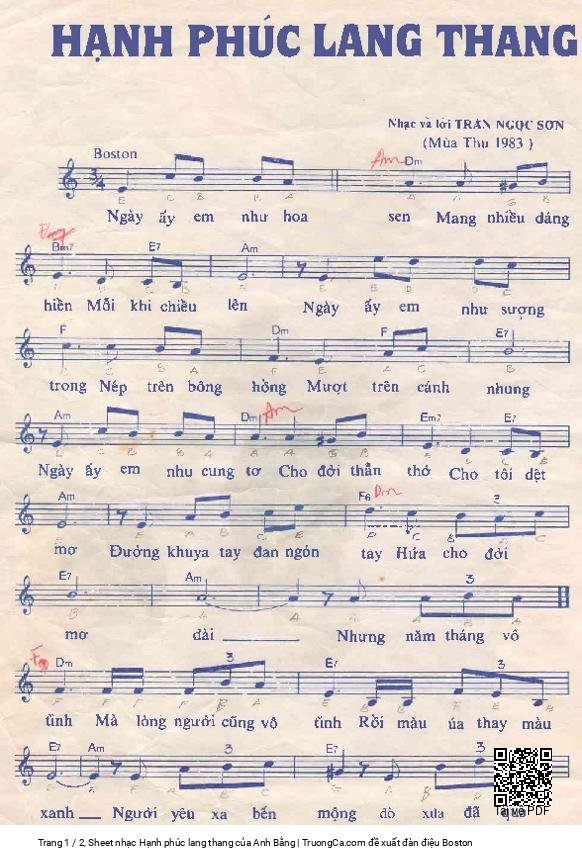 HẠNH PHÚC LANG THANG
Nhạc và lời TRẦN NGỌC SƠN
(Mùa Thu 1983 )
Boston
Am Dm
3/4
E C B B A A A G B
Ngày ấy em như hoa sen Mang nhiều dáng
Bm7 E7 Am
hiền Mỗi khi chiều lên Ngày ấy em như sượng
F Dm F E7
trong Nép trên bông hồng Mượt trên cánh nhung
Am Dm Am Em7 E7
Ngày ấy em như cung tơ Cho đời thẫn thờ Cho tôi dệt
Am F6 Dm
mơ Đường khuya tay đan ngón tay Hứa cho đời
E7 Am 3
mơ dài Nhưng năm tháng vô
Dm 3 E7 3
tình Mà lòng người cũng vô tình Rồi màu úa thay màu
E7 Am 3 E7 3
xanh Người yêu xa bến mộng đò xưa đã qua
Tải về PDF
Trang 1 / 2, Sheet nhạc Hạnh phúc lang thang của Anh Bằng | TruongCa.com đề xuất đàn điệu Boston